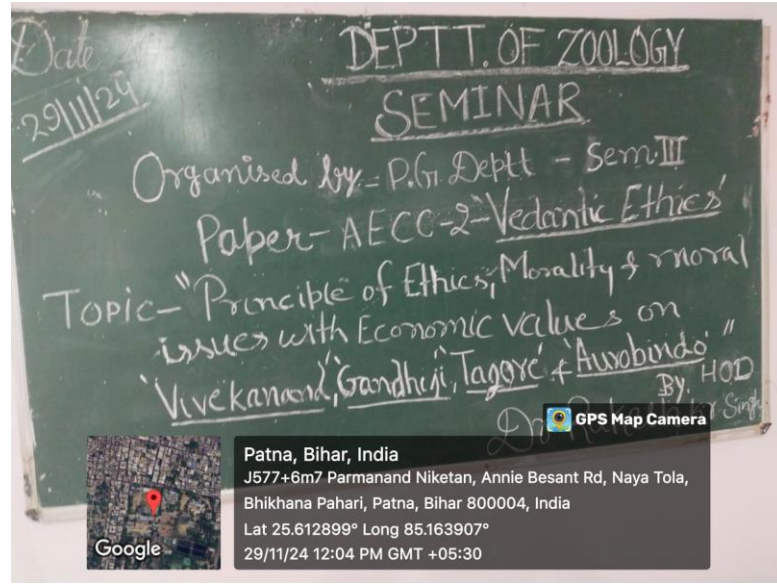 Date
29/11/24
DEPTT. OF ZOOLOGY
SEMINAR
Organised by - P.G. Deptt - Sem. III
Paper - AECC-2 - "Vedantic Ethics"
Topic - "Principle of Ethics, Morality & moral
issues with Economic values on
'Vivekanand', 'Gandhiji', 'Tagore' & 'Aurobindo'"
By. HOD
Dr. Rakesh Kr Singh
GPS Map Camera
Patna, Bihar, India
J577+6m7 Parmanand Niketan, Annie Besant Rd, Naya Tola,
Bhikhana Pahari, Patna, Bihar 800004, India
Lat 25.612899° Long 85.163907°
29/11/24 12:04 PM GMT +05:30
Google